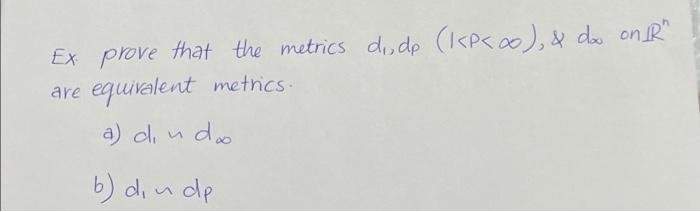 Ex. prove that the metrics d₁, dp (1<p<∞), & d∞ on ℝⁿ
are equivalent metrics.
a) d₁ ~ d∞
b) d₁ ~ dp